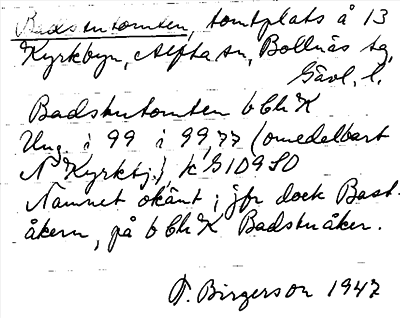 Badstutomten, tomtplats å 13
Kyrkbyn, Alfta sn, Bollnäs tg,
Gävl. l.
Badstutomten b Ch K
Ung. i 99 i 99,77 (omedelbart
N Kyrktj.), k G 109 SO
Namnet okänt; jfr dock Bast-
åkern, på b Ch K Badstuåker.
F. Birgerson 1947